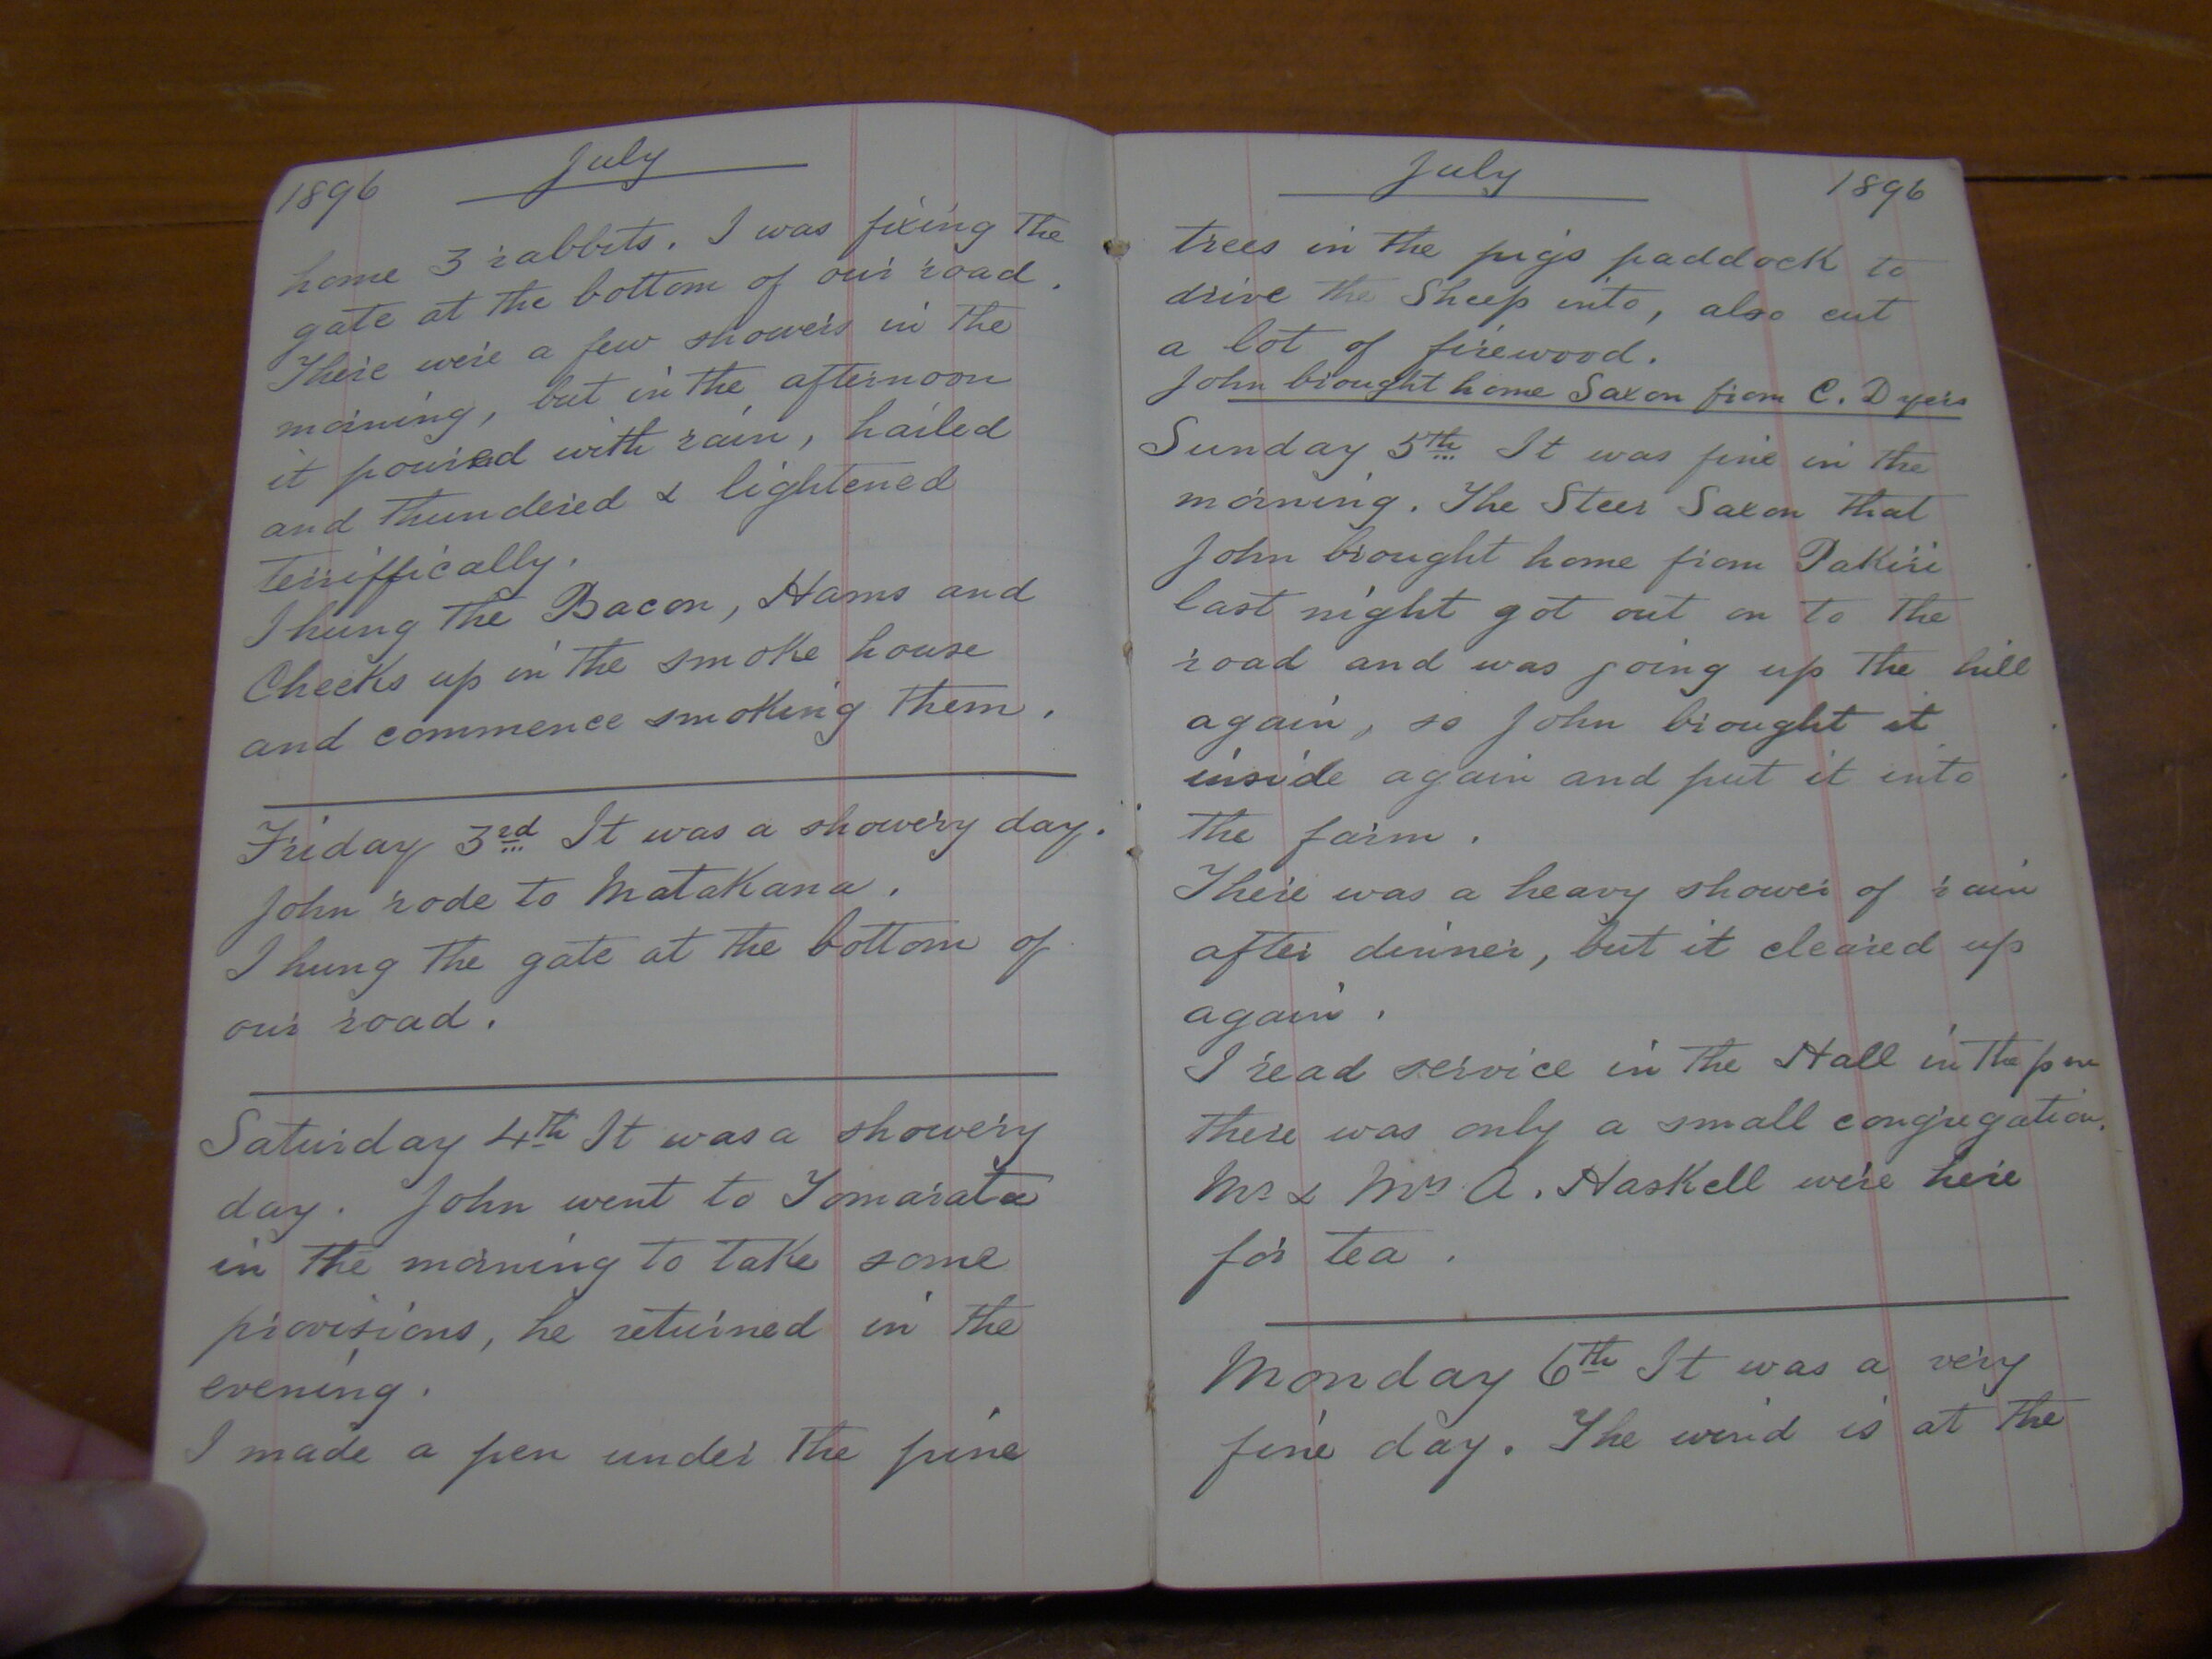 1896 July
home 3 rabbits. I was fixing the
gate at the bottom of our road.
There were a few showers in the
morning, but in the afternoon
it poured with rain, hailed
and thundered & lightened
terriffically.
I hung the Bacon, Hams and
Cheeks up in the smoke house
and commence smoking them.
Friday 3rd It was a showery day.
John rode to Matakana.
I hung the gate at the bottom of
our road.
Saturday 4th It was a showery
day. John went to Tomarata
in the morning to take some
provisions, he returned in the
evening.
I made a pen under the pine
July 1896
trees in the pigs paddock to
drive the Sheep into, also cut
a lot of firewood.
John brought home Saxon from C. Dyers
Sunday 5th It was fine in the
morning. The Steer Saxon that
John brought home from Pakiri
last night got out on to the
road and was going up the hill
again, so John brought it
inside again and put it into
the farm.
There was a heavy shower of rain
after dinner, but it cleared up
again.
I read service in the Hall in the pm
there was only a small congregation.
Mr & Mrs A. Haskell were here
for tea.
Monday 6th It was a very
fine day. The wind is at the